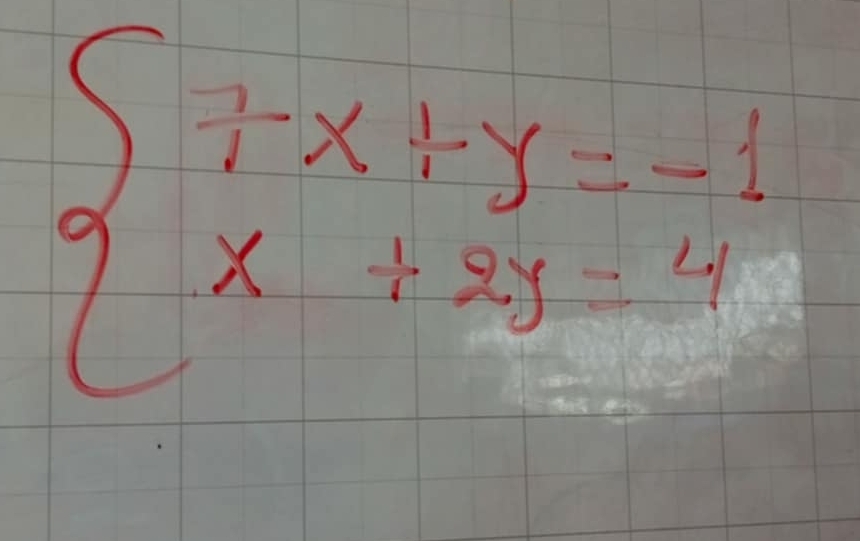 7x + y = - 1
x + 2y = 4